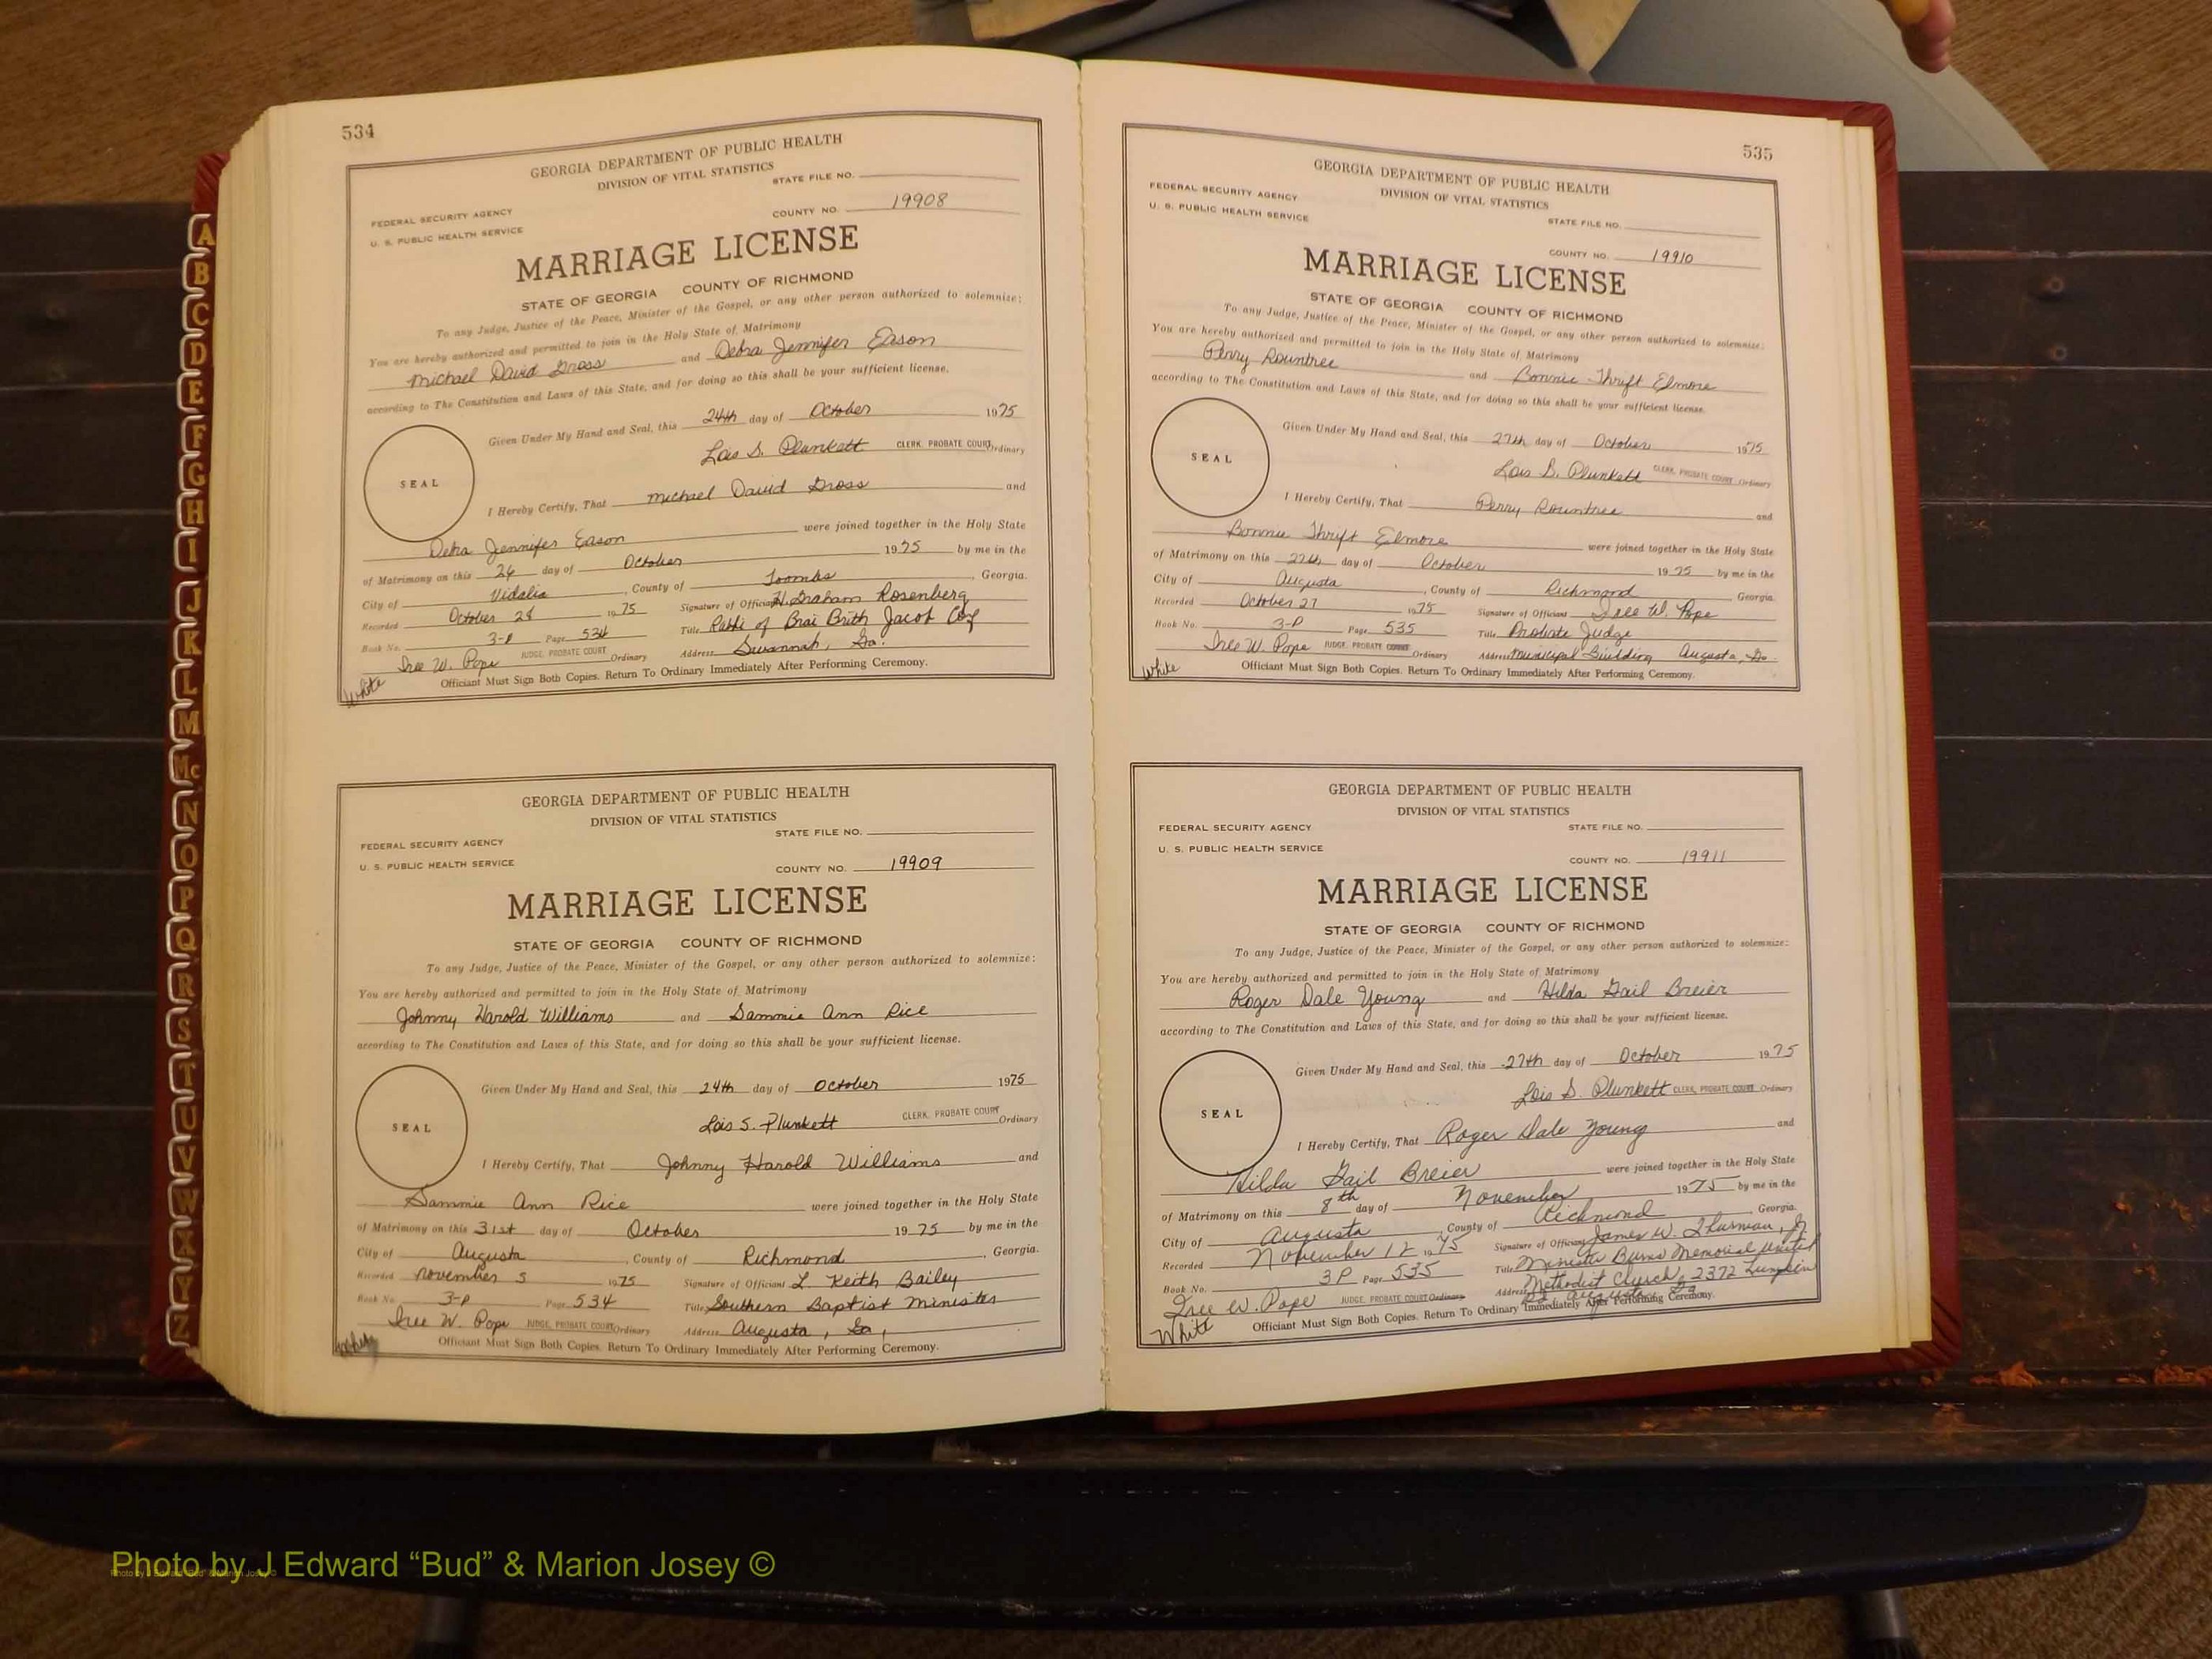 534
GEORGIA DEPARTMENT OF PUBLIC HEALTH
DIVISION OF VITAL STATISTICS
STATE FILE NO.
FEDERAL SECURITY AGENCY
U. S. PUBLIC HEALTH SERVICE
COUNTY NO. 19908
MARRIAGE LICENSE
STATE OF GEORGIA COUNTY OF RICHMOND
To any Judge, Justice of the Peace, Minister of the Gospel, or any other person authorized to solemnize:
You are hereby authorized and permitted to join in the Holy State of Matrimony
Michael David Gross and Debra Jennifer Eason
according to The Constitution and Laws of this State, and for doing so this shall be your sufficient license.
Given Under My Hand and Seal, this 24th day of October 1975
Lois S. Plunkett CLERK, PROBATE COURT Ordinary
SEAL
I Hereby Certify, That Michael David Gross and
Debra Jennifer Eason were joined together in the Holy State
of Matrimony on this 26 day of October 1975 by me in the
City of Vidalia, County of Toombs, Georgia.
Recorded October 28 1975 Signature of Official H. Graham Rosenberg
Book No. 3-P Page 534 Title Rabbi of Brai Brith Jacob Cog
Iree W. Pope JUDGE, PROBATE COURT Ordinary Address Suvannah, Ga.
White
Officiant Must Sign Both Copies. Return To Ordinary Immediately After Performing Ceremony.
GEORGIA DEPARTMENT OF PUBLIC HEALTH
DIVISION OF VITAL STATISTICS
STATE FILE NO.
FEDERAL SECURITY AGENCY
U. S. PUBLIC HEALTH SERVICE
COUNTY NO. 19909
MARRIAGE LICENSE
STATE OF GEORGIA COUNTY OF RICHMOND
To any Judge, Justice of the Peace, Minister of the Gospel, or any other person authorized to solemnize:
You are hereby authorized and permitted to join in the Holy State of Matrimony
Johnny Harold Williams and Sammie Ann Rice
according to The Constitution and Laws of this State, and for doing so this shall be your sufficient license.
Given Under My Hand and Seal, this 24th day of October 1975
Lois S. Plunkett CLERK, PROBATE COURT Ordinary
SEAL
I Hereby Certify, That Johnny Harold Williams and
Sammie Ann Rice were joined together in the Holy State
of Matrimony on this 31st day of October 1975 by me in the
City of Augusta, County of Richmond, Georgia.
Recorded November 5 1975 Signature of Official L. Keith Bailey
Book No. 3-P Page 534 Title Southern Baptist Minister
Iree W. Pope JUDGE, PROBATE COURT Ordinary Address Augusta, Ga,
Officiant Must Sign Both Copies. Return To Ordinary Immediately After Performing Ceremony.
535
GEORGIA DEPARTMENT OF PUBLIC HEALTH
DIVISION OF VITAL STATISTICS
FEDERAL SECURITY AGENCY
U. S. PUBLIC HEALTH SERVICE
STATE FILE NO.
COUNTY NO. 19910
MARRIAGE LICENSE
STATE OF GEORGIA COUNTY OF RICHMOND
To any Judge, Justice of the Peace, Minister of the Gospel, or any other person authorized to solemnize:
You are hereby authorized and permitted to join in the Holy State of Matrimony
Perry Rountree and Bonnie Thrift Elmore
according to The Constitution and Laws of this State, and for doing so this shall be your sufficient license.
Given Under My Hand and Seal, this 27th day of October 1975
Lois S. Plunkett CLERK, PROBATE COURT Ordinary
SEAL
I Hereby Certify, That Perry Rountree and
Bonnie Thrift Elmore were joined together in the Holy State
of Matrimony on this 27th day of October 1975 by me in the
City of Augusta, County of Richmond Georgia
Recorded October 27 1975 Signature of Official Iree W. Pope
Book No. 3-P Page 535 Title Probate Judge
Iree W. Pope JUDGE, PROBATE COURT Ordinary Address Municipal Building Augusta, Ga.
White
Officiant Must Sign Both Copies. Return To Ordinary Immediately After Performing Ceremony.
GEORGIA DEPARTMENT OF PUBLIC HEALTH
DIVISION OF VITAL STATISTICS
FEDERAL SECURITY AGENCY STATE FILE NO.
U. S. PUBLIC HEALTH SERVICE
COUNTY NO. 19911
MARRIAGE LICENSE
STATE OF GEORGIA COUNTY OF RICHMOND
To any Judge, Justice of the Peace, Minister of the Gospel, or any other person authorized to solemnize:
You are hereby authorized and permitted to join in the Holy State of Matrimony
Roger Dale Young and Hilda Gail Breier
according to The Constitution and Laws of this State, and for doing so this shall be your sufficient license.
Given Under My Hand and Seal, this 27th day of October 1975
Lois S. Plunkett CLERK, PROBATE COURT Ordinary
SEAL
I Hereby Certify, That Roger Dale Young and
Hilda Gail Breier were joined together in the Holy State
of Matrimony on this 8th day of November 1975 by me in the
City of Augusta, County of Richmond, Georgia.
Recorded November 12 1975 Signature of Official James W. Thurman, Jr
Book No. 3P Page 535 Title Minister Burns Memorial United
Methodist Church, 2372 Lumpkin
Iree W. Pope JUDGE, PROBATE COURT Ordinary Address Rd Augusta, Ga
White
Officiant Must Sign Both Copies. Return To Ordinary Immediately After Performing Ceremony.
A
B
C
D
E
F
G
H
I
J
K
L
M
Mc
N
O
P
Q
R
S
T
U
V
W
X
Y
Z
Photo by J Edward “Bud” & Marion Josey ©
Photo by J Edward “Bud” & Marion Josey ©